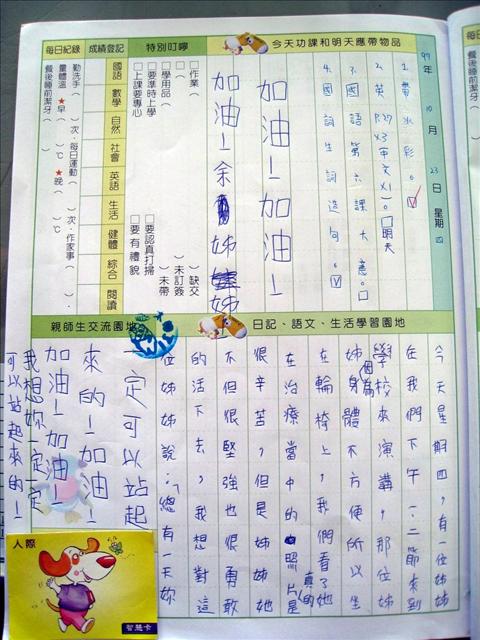 今天功課和明天應帶物品
特別叮嚀
成績登記
每日紀錄
97年10月23日星期四
1.帶水彩。
明天
3.國語第六課大意。
4.國詞生詞造句。
加油!加油!
加油!余
姊
□作業(
)缺交
□(
)未訂簽
□學用品(
)未帶
□要準時上學
□要認真打掃
□上課要專心
□要有禮貌
國語
數學
自然
社會
英語
生活
健體
綜合
閱讀
勤洗手( )次.每日運動( )次.作家事( )
量體溫★早( )℃★晚( )℃
餐後睡前潔牙( )
日記、語文、生活學習園地
親師生交流園地
今天星期四,有一位姊姊
在我們下午一、二節來到
學校來演講,那位姊
姊因為身體不方便所以坐
在輪椅上,我們看了她
在治療當中的照片真的是
很辛苦,但是姊姊她
不但很堅強也很勇敢
的活下去,我想對這
位姊姊說:「總有一天妳
一定可以站起
來的!加油!
加油!加油!
我想妳一定一定
可以站起來的!
人際
智慧卡